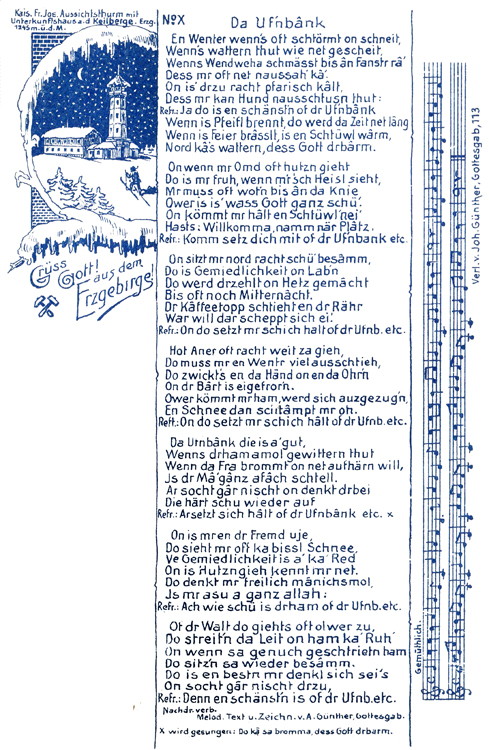 Kais. Fr. Jos. Aussichtsthurm mit
Unterkunftshaus a.d Keilberge. Erzg.
1245 m. ü. d. M.
Grüss Gott!
aus dem
Erzgebirge!
№ X
Da Ufnbånk
En Wenter wenn's oft schtörmt on schneit,
Wenn's wattern thut wie net gescheit,
Wenns Wendweha schmässt bis ån Fanstr rå'
Dess mr oft net naussah' kå'.
On is' drzu racht pfarisch kålt,
Dess mr kan Hund nausschtusn thut:
Refr.: Ja do is en schänst'n of dr Ufnbånk
Wenn is Pfeifl brennt, do werd da Zeit net lång
Wenn is Feier brässlt, is en Schtüwl wårm,
Nord kå's wattern, dess Gott drbårm.
On wenn mr Omd oft hutzn gieht
Do is mr fruh, wenn mr'sch Heisl sieht,
Mr muss oft wot'n bis ån da Knie
Ower is is' wass Gott ganz schü'.
On kömmt mr hålt en Schtüwl 'nei'
Hasts: Willkomma, namm när Plåtz.
Refr.: Komm setz dich mit of dr Ufnbank etc.
On sitzt mr nord racht schü' besåmm,
Do is Gemiedlichkeit on Lab'n
Do werd drzehlt on Hetz gemåcht
Bis oft noch Mitternåcht.
Dr Kåffeetopp schtieht en dr Rähr
War will dar scheppt sich ei'.
Refr.: On do setzt mr schich halt of dr Ufnb. etc.
Hot Aner oft racht weit za gieh,
Do muss mr en Wentr viel ausschtieh,
Do zwickt's en da Händ on en da Ohr'n
On dr Bårt is eigefrorn.
Ower kömmt mr ham, werd sich auszezug'n,
En Schnee dan schtåmpt mr oh.
Refr.: On do setzt mr schich hålt of dr Ufnb. etc.
Da Ufnbånk die is a' gut,
Wenns drham amol gewittern thut
Wenn da Fra brommt on net aufhärn will,
Js dr Må' gånz afåch schtell.
Ar socht går nischt on denkt drbei
Die härt schu wieder auf
Refr.: Ar setzt sich hålt of dr Ufnbånk etc. x
On is mr en dr Fremd uje,
Do sieht mr oft ka bissl Schnee,
Ve Gemiedlichkeit is a' ka' Red
On is Hutzngieh kennt mr net.
Do denkt mr freilich månichsmol,
Js mr asu a ganz allah:
Refr.: Ach wie schü is drham of dr Ufnb. etc.
Of dr Walt do gieht's oft olwer zu,
Do streit'n da' Leit on ham ka' Ruh'
On wenn sa genuch geschtrieth ham
Do sitz'n sa wieder besåmm.
Do is en bestn mr denkt sich sei's
On socht går nischt drzu,
Refr.: Denn en schänst'n is of dr Ufnb. etc.
Nachdr. verb.
Melod. Text u. Zeichn. v. A. Günther, Gottesgab.
x wird gesungen: Do kå sa bromma, dess Gott drbarm.
Gemüthlich.
Verl. v. Joh. Günther, Gottesgab, 113